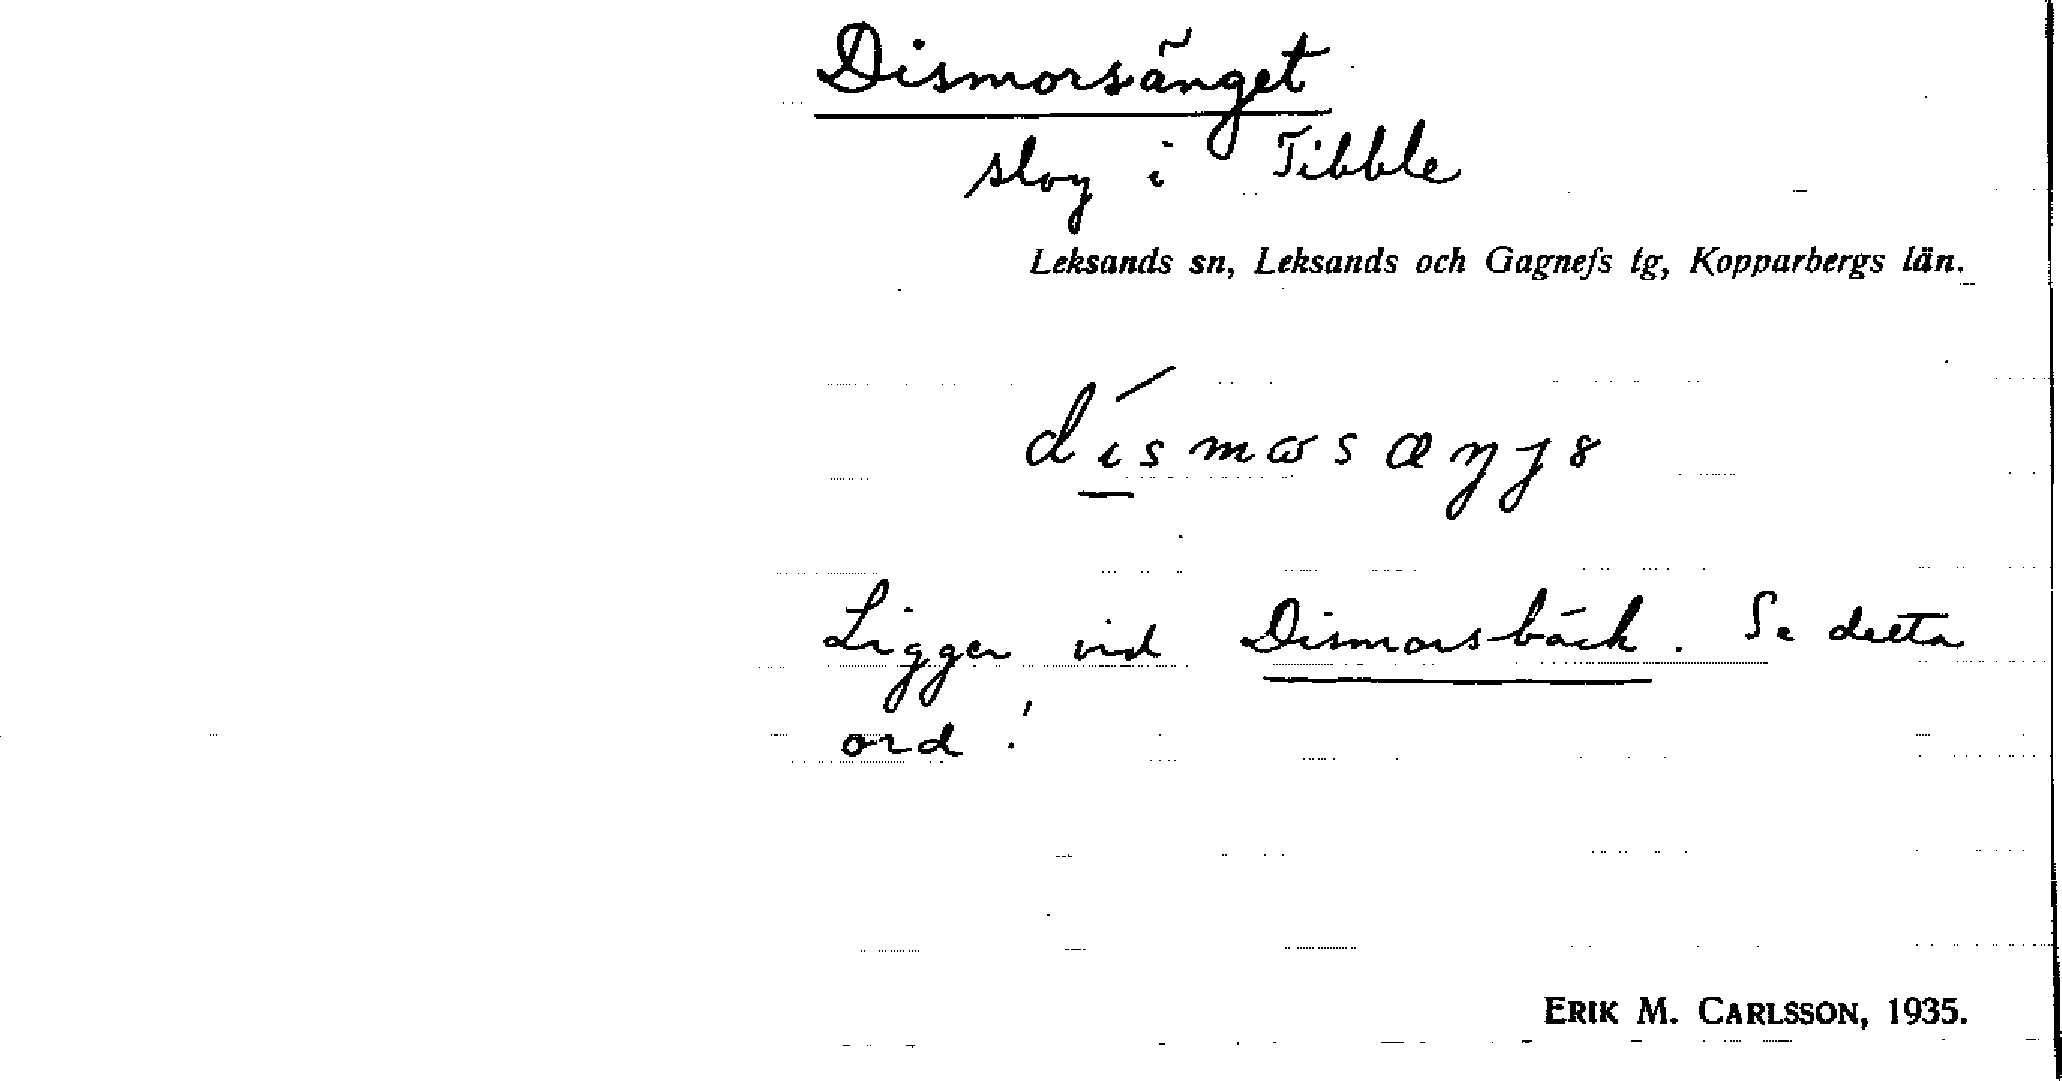 Dismorsänget
slog i Tibble
Leksands sn, Leksands och Gagnefs tg, Kopparbergs län.
Ligger vid Dismorsbäck. Se detta
ord!
ERIK M. CARLSSON, 1935.